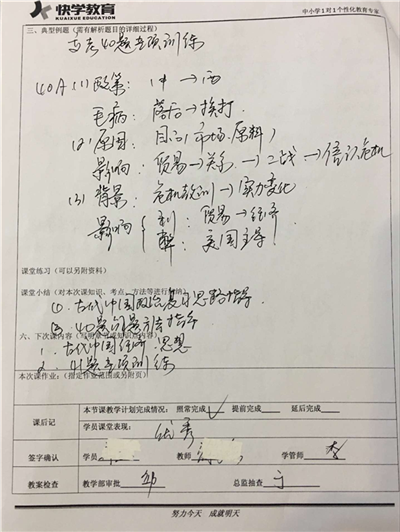 快学教育
KUAIXUE EDUCATION
中小学1对1个性化教育专家
三、典型例题(需有解析题目的详细过程)
高考40题专项训练
40A (1) 政策: 中→西
毛病: 落后→挨打
(2) 原因: 目的(市场.原料)
影响: 贸易→关系→二战→
(3) 背景: 危机教训→实力变化
影响 { 利: 贸易→经济
弊: 美国主导
课堂练习(可以另附资料)
课堂小结(对本次课知识、考点、方法等进行归纳)
①.古代中国政治复习思路指导.
②.40题解题方法指导
六、下次课内容(
1.古代中国经济 思想
2.41题专项训练
本次课作业:(指定作业范围或另附页)
课后记
本节课教学计划完成情况: 照常完成 √ 提前完成 延后完成
学员课堂表现: 优秀
签字确认
学员
教师
学管师
李
教案检查
教学部审批
邹
总监抽查
努力今天 成就明天